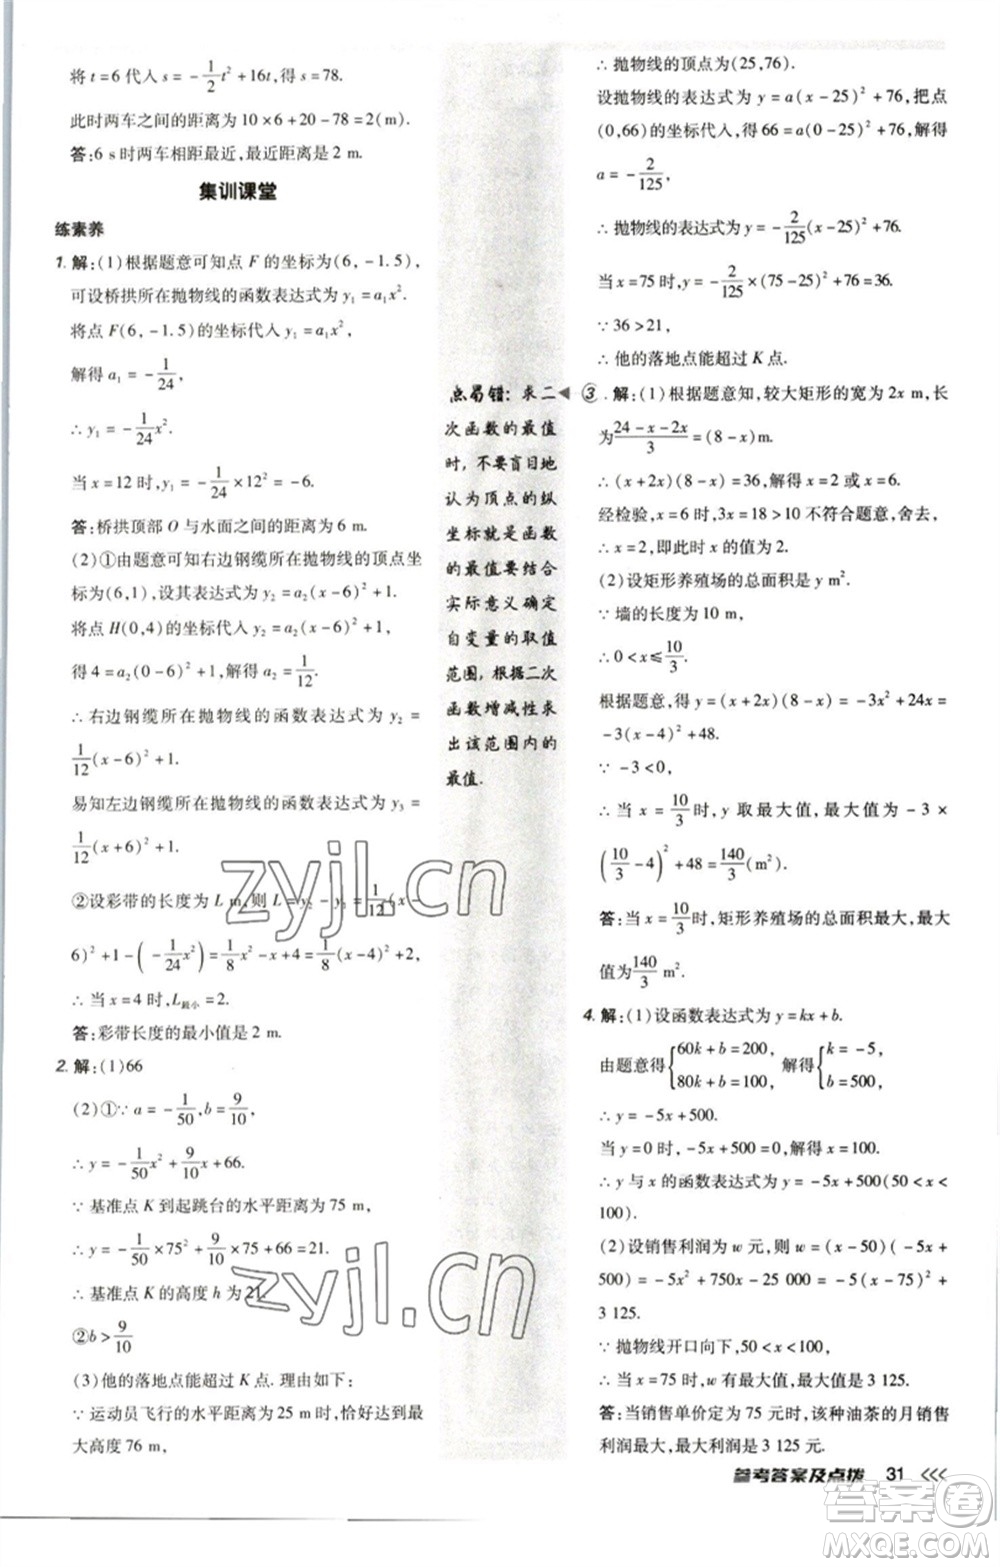 将 t=6 代入 s=-1/2t²+16t,得 s=78.
此时两车之间的距离为 10×6+20-78=2(m).
答:6 s时两车相距最近,最近距离是 2 m.
集训课堂
练素养
1. 解:(1)根据题意可知点 F 的坐标为(6,-1.5),
可设桥拱所在抛物线的函数表达式为 y₁=a₁x².
将点 F(6,-1.5)的坐标代入 y₁=a₁x²,
解得 a₁=-1/24,
∴ y₁=-1/24x².
当 x=12 时,y₁=-1/24×12²=-6.
答:桥拱顶部 O 与水面之间的距离为 6 m.
(2)①由题意可知右边钢缆所在抛物线的顶点坐标
为(6,1),设其表达式为 y₂=a₂(x-6)²+1.
将点 H(0,4)的坐标代入 y₂=a₂(x-6)²+1,
得 4=a₂(0-6)²+1,解得 a₂=1/12,
∴ 右边钢缆所在抛物线的函数表达式为 y₂=
1/12(x-6)²+1.
易知左边钢缆所在抛物线的函数表达式为 y₃=
1/12(x+6)²+1.
②设彩带的长度为 L m,则 L=y₂-y₁=1/12(x-
6)²+1-(-1/24x²)=1/8x²-x+4=1/8(x-4)²+2,
∴ 当 x=4 时,L最小=2.
答:彩带长度的最小值是 2 m.
2. 解:(1)66
(2)①∵ a=-1/50,b=9/10,
∴ y=-1/50x²+9/10x+66.
∵ 基准点 K 到起跳台的水平距离为 75 m,
∴ y=-1/50×75²+9/10×75+66=21.
∴ 基准点 K 的高度 h 为 21.
②b>9/10
(3)他的落地点能超过 K 点. 理由如下:
∵ 运动员飞行的水平距离为 25 m时,恰好达到最
大高度 76 m,
点易错:求二
次函数的最值
时,不要盲目地
认为顶点的纵
坐标就是函数
的最值要结合
实际意义确定
自变量的取值
范围,根据二次
函数增减性求
出该范围内的
最值.
∴ 抛物线的顶点为(25,76).
设抛物线的表达式为 y=a(x-25)²+76,把点
(0,66)的坐标代入,得 66=a(0-25)²+76,解得
a=-2/125,
∴ 抛物线的表达式为 y=-2/125(x-25)²+76.
当 x=75 时,y=-2/125×(75-25)²+76=36.
∵ 36>21,
∴ 他的落地点能超过 K 点.
③. 解:(1)根据题意知,较大矩形的宽为 2x m,长
为(24-x-2x)/3=(8-x)m.
∴ (x+2x)(8-x)=36,解得 x=2 或 x=6.
经检验,x=6 时,3x=18>10 不符合题意,舍去,
∴ x=2,即此时 x 的值为 2.
(2)设矩形养殖场的总面积是 y m².
∵ 墙的长度为 10 m,
∴ 0<x≤10/3.
根据题意,得 y=(x+2x)(8-x)=-3x²+24x=
-3(x-4)²+48.
∵ -3<0,
∴ 当 x=10/3时,y 取最大值,最大值为 -3×
(10/3-4)²+48=140/3(m²).
答:当 x=10/3时,矩形养殖场的总面积最大,最大
值为140/3 m².
4. 解:(1)设函数表达式为 y=kx+b.
由题意得{60k+b=200, 80k+b=100, 解得{k=-5, b=500,
∴ y=-5x+500.
当 y=0 时,-5x+500=0,∴ x=100.
∴ y 与 x 的函数表达式为 y=-5x+500(50<x<
100).
(2)设销售利润为 w 元,则 w=(x-50)(-5x+
500)=-5x²+750x-25 000=-5(x-75)²+
3 125.
∵ 抛物线开口向下,50<x<100,
∴ 当 x=75 时,w 有最大值,最大值是 3 125.
答:当销售单价定为 75 元时,该种油茶的月销售
利润最大,最大利润是 3 125 元.
参考答案及点拨 31
zyjl.cn
zyjl.cn
答案圈
MXQE.COM